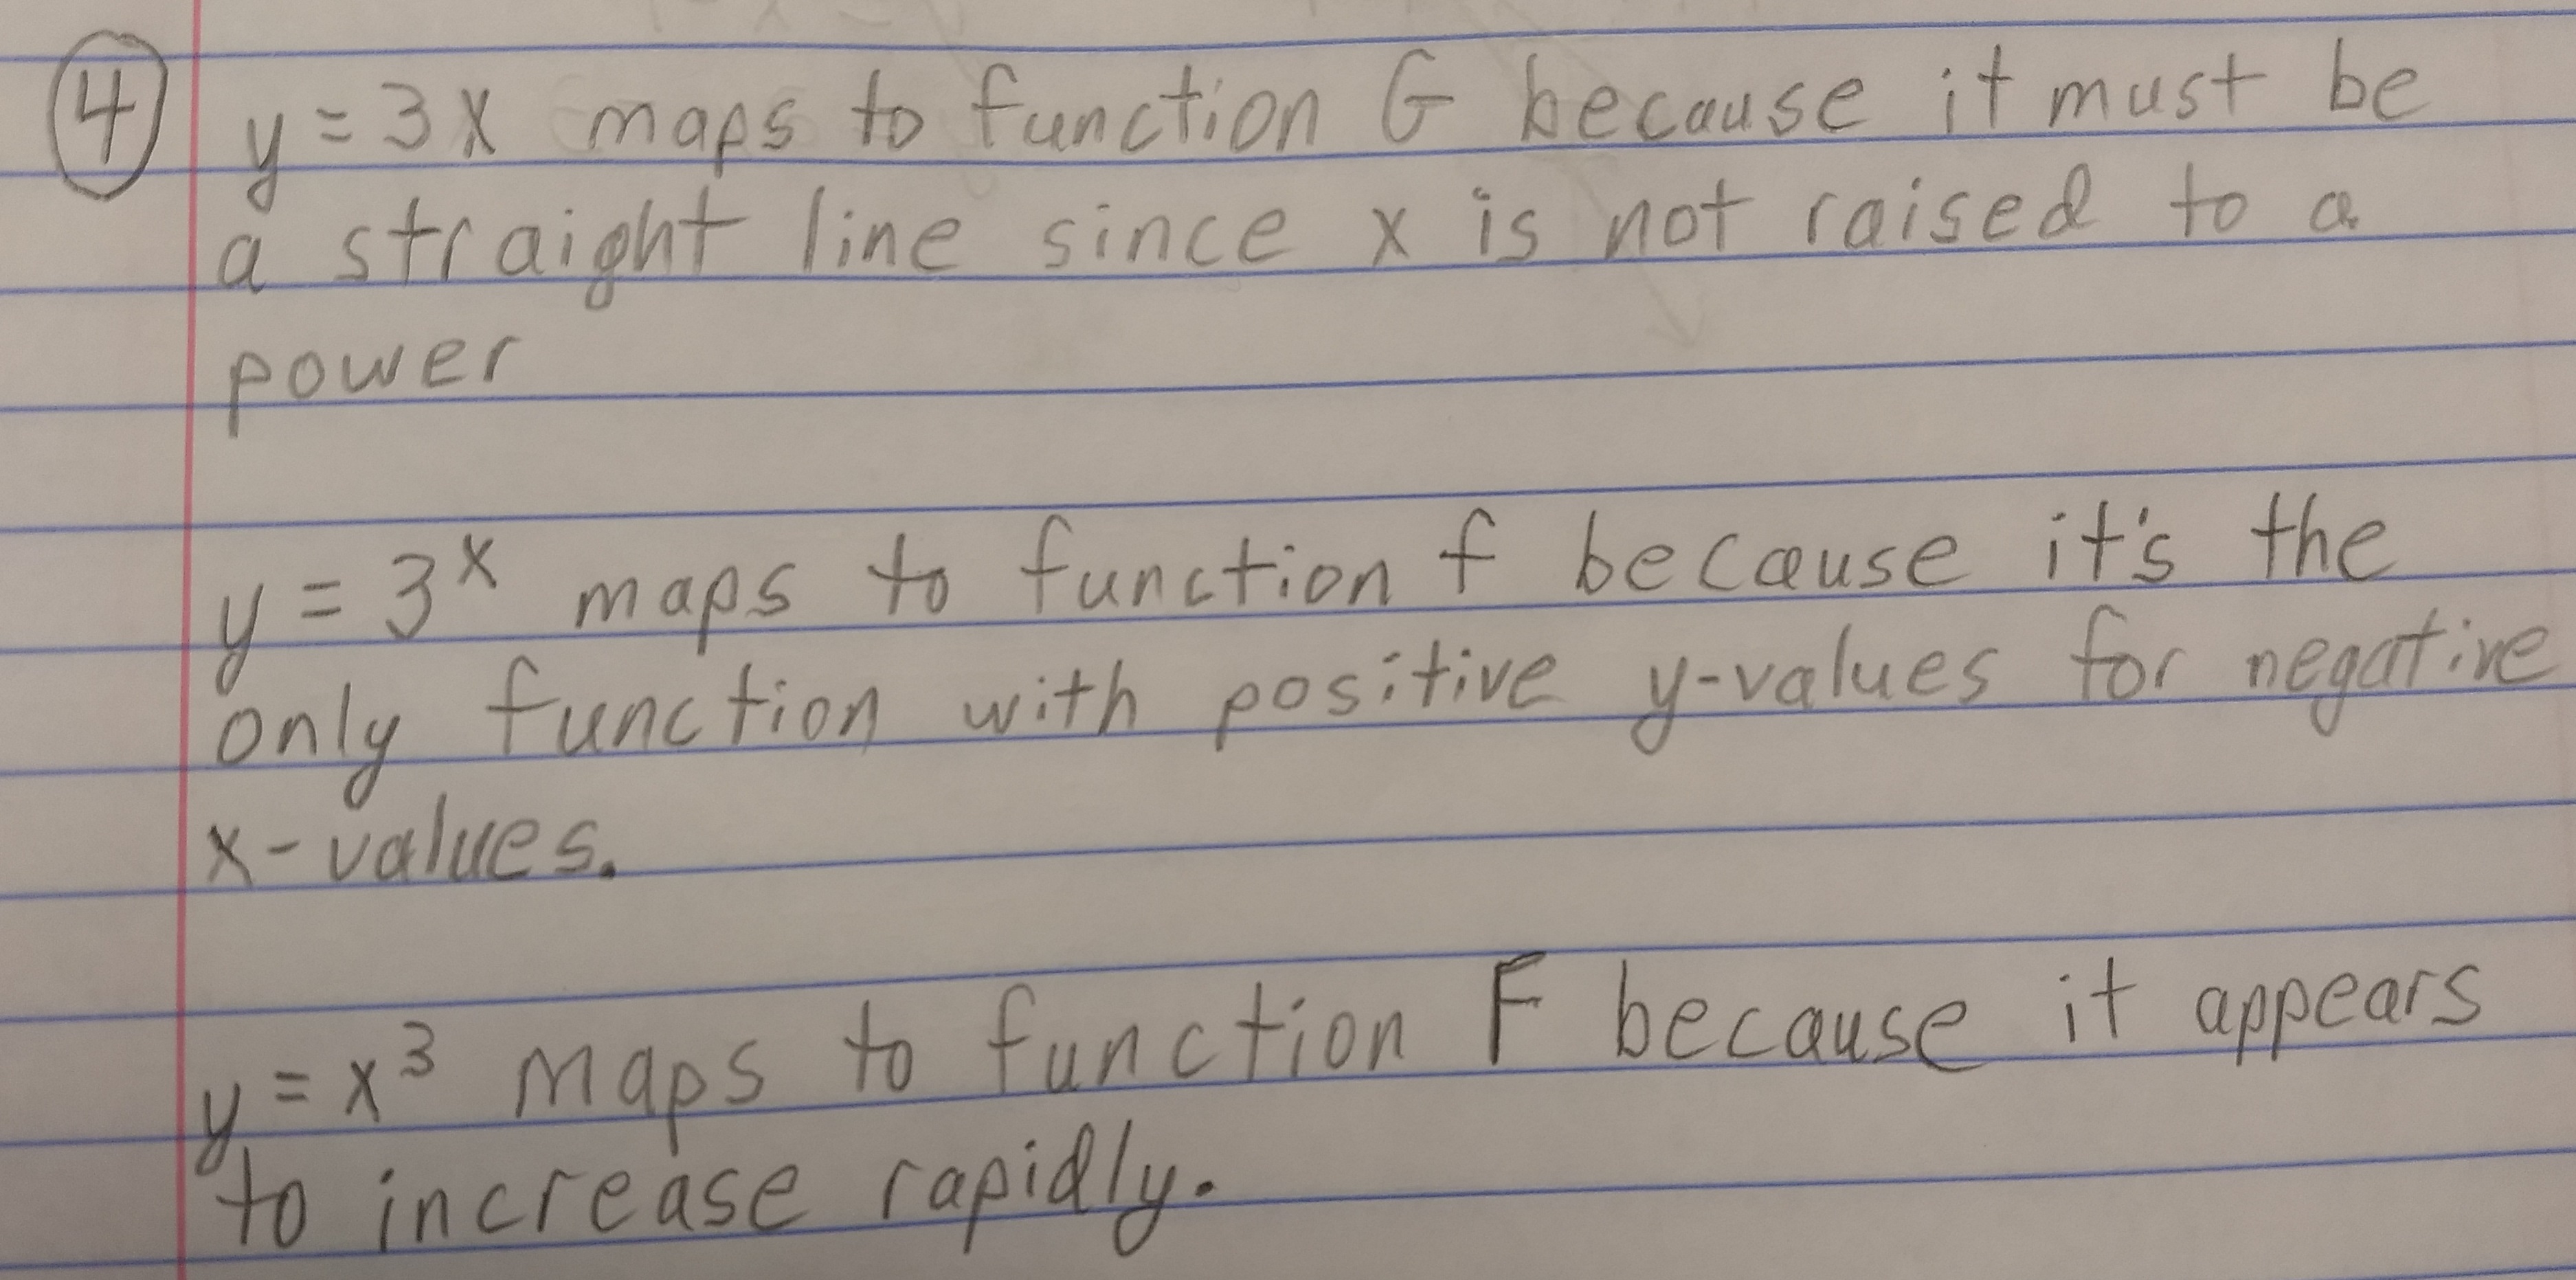 4 y = 3x maps to function G because it must be
a straight line since x is not raised to a
power
y = 3^x maps to function f because it's the
only function with positive y-values for negative
x-values.
y = x³ maps to function F because it appears
to increase rapidly.